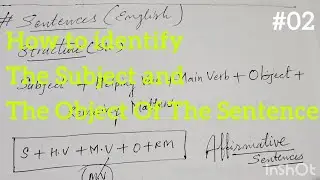 # Sentences (English)
#02
How to identify
Structure
The Subject and
Subject + Helping Verb + Main Verb + Object +
The Object Of The Sentence
Remaining Matter
S + H.V + M.V + O + RM
Affirmative
Sentences
InShOt